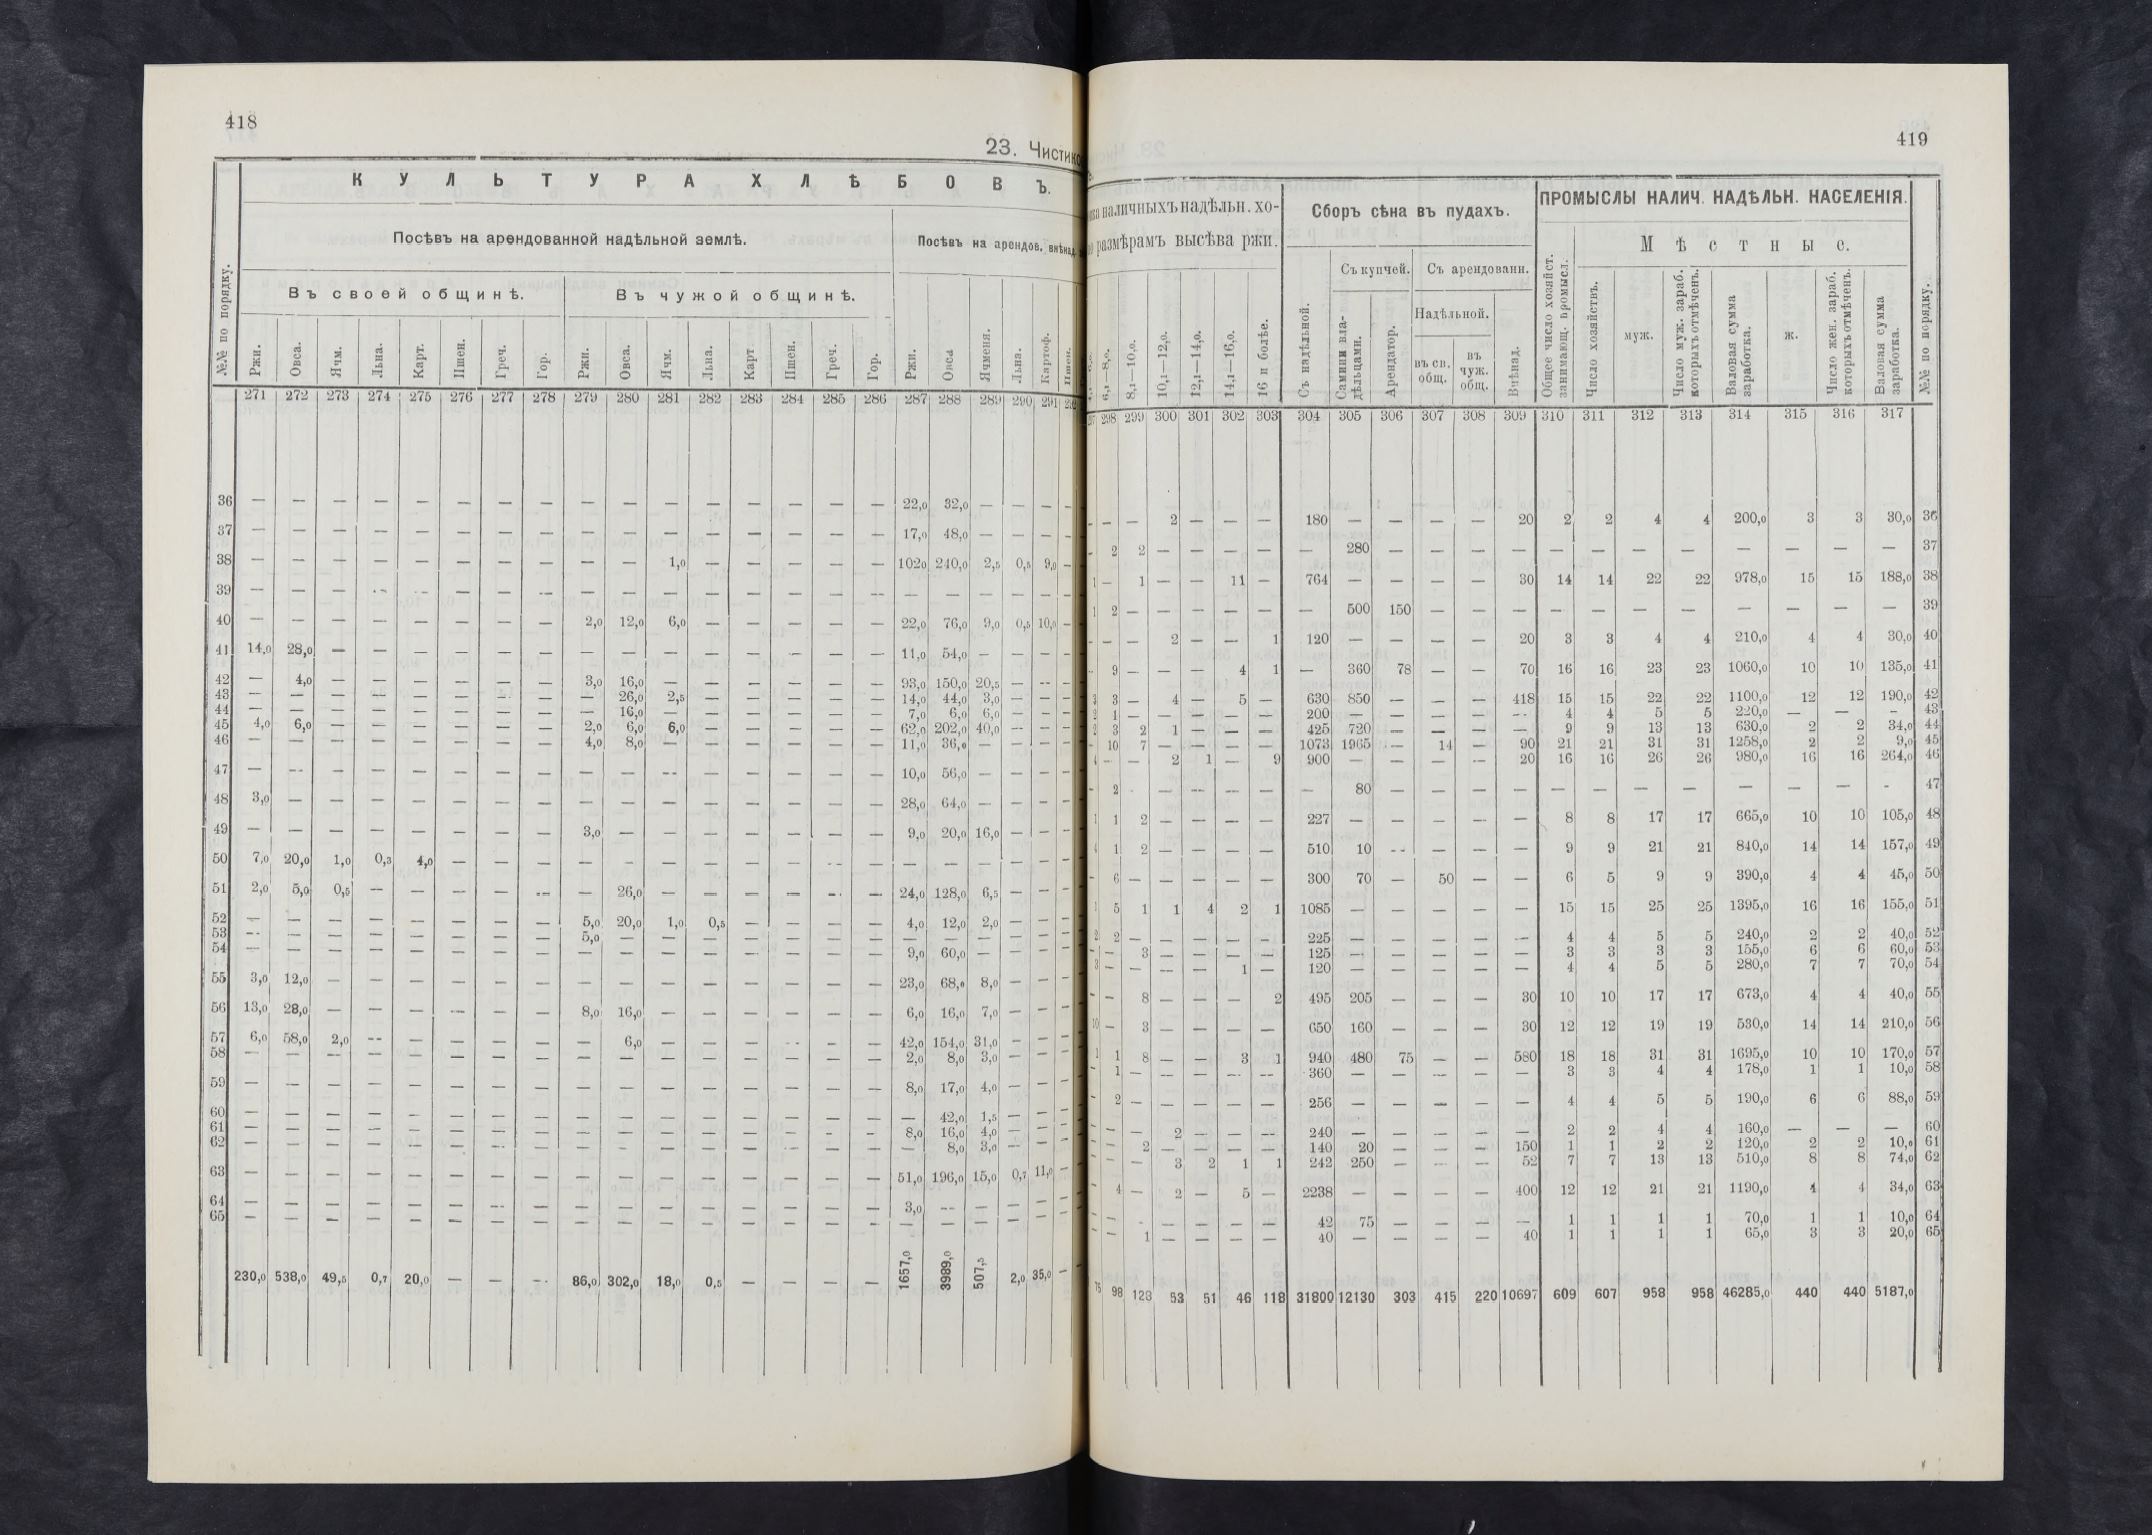 418
23. Чистико
КУЛЬТУРА ХЛѢБОВЪ.
№№ по порядку.
Посѣвъ на арендованной надѣльной землѣ.
Посѣвъ на арендов. внѣнад.
Въ своей общинѣ.
Въ чужой общинѣ.
Ржи. Овса. Ячм. Льна. Карт. Пшен. Греч. Гор. Ржи. Овса. Ячм. Льна. Карт Пшен. Греч. Гор. Ржи. Овса Ячменя. Льна. Картоф. Пшен.
271 272 273 274 275 276 277 278 279 280 281 282 283 284 285 286 287 288 289 290 291
36 — — — — — — — — — — — — — — — — 22,0 32,0 — — — —
37 — — — — — — — — — — — — — — — — 17,0 48,0 — — — —
38 — — — — — — — — — — 1,0 — — — — — 102,0 240,0 2,5 0,5 9,0 —
39 — — — — — — — — — — — — — — — — — — — — — —
40 — — — — — — — — 2,0 12,0 6,0 — — — — — 22,0 76,0 9,0 0,5 10,0 —
41 14,0 28,0 — — — — — — — — — — — — — — 11,0 54,0 — — — —
42 — 4,0 — — — — — — 3,0 16,0 — — — — — — 93,0 150,0 20,5 — — —
43 — — — — — — — — — 26,0 2,5 — — — — — 14,0 44,0 3,0 — — —
44 — — — — — — — — — 16,0 — — — — — — 7,0 6,0 6,0 — — —
45 4,0 6,0 — — — — — — 2,0 6,0 6,0 — — — — — 62,0 202,0 40,0 — — —
46 — — — — — — — — 4,0 8,0 — — — — — — 11,0 36,0 — — — —
47 — — — — — — — — — — — — — — — — 10,0 56,0 — — — —
48 3,0 — — — — — — — — — — — — — — — 28,0 64,0 — — — —
49 — — — — — — — — 3,0 — — — — — — — 9,0 20,0 16,0 — — —
50 7,0 20,0 1,0 0,3 4,0 — — — — — — — — — — — — — — — — —
51 2,0 5,0 0,5 — — — — — — 26,0 — — — — — — 24,0 128,0 6,5 — — —
52 — — — — — — — — 5,0 20,0 1,0 0,5 — — — — 4,0 12,0 2,0 — — —
53 — — — — — — — — 5,0 — — — — — — — — — — — — —
54 — — — — — — — — — — — — — — — — 9,0 60,0 — — — —
55 3,0 12,0 — — — — — — — — — — — — — — 23,0 68,0 8,0 — — —
56 13,0 28,0 — — — — — — 8,0 16,0 — — — — — — 6,0 16,0 7,0 — — —
57 6,0 58,0 2,0 — — — — — — 6,0 — — — — — — 42,0 154,0 31,0 — — —
58 — — — — — — — — — — — — — — — — 2,0 8,0 3,0 — — —
59 — — — — — — — — — — — — — — — — 8,0 17,0 4,0 — — —
60 — — — — — — — — — — — — — — — — — 42,0 1,5 — — —
61 — — — — — — — — — — — — — — — — 8,0 16,0 4,0 — — —
62 — — — — — — — — — — — — — — — — — 8,0 3,0 — — —
63 — — — — — — — — — — — — — — — — 51,0 196,0 15,0 0,7 11,0 —
64 — — — — — — — — — — — — — — — — 3,0 — — — — —
65 — — — — — — — — — — — — — — — — — — — — — —
230,0 538,0 49,5 0,7 20,0 — — — 86,0 302,0 18,0 0,5 — — — — 1657,0 3989,0 507,5 2,0 35,0 —
419
наличныхъ надѣльн. хо-
размѣрамъ высѣва ржи.
Сборъ сѣна въ пудахъ.
ПРОМЫСЛЫ НАЛИЧ. НАДѢЛЬН. НАСЕЛЕНІЯ.
Мѣстные.
Съ купчей. Съ арендованн.
Надѣльной.
6,1—8,0. 8,1—10,0. 10,1—12,0. 12,1—14,0. 14,1—16,0. 16 и болѣе. Съ надѣльной. Самими вла-дѣльцами. Арендатор. въ св. общ. въ чуж. общ. Внѣнад. Общее число хозяйст. занимающ. промысл. Число хозяйствъ. муж. Число муж. зараб. которыхъ отмѣченъ. Валовая сумма заработка. ж. Число жен. зараб. которыхъ отмѣченъ. Валовая сумма заработка. №№ по порядку.
298 299 300 301 302 303 304 305 306 307 308 309 310 311 312 313 314 315 316 317
— — — 2 — — — 180 — — — — 20 2 2 4 4 200,0 3 3 30,0 36
— 2 2 — — — — — 280 — — — — — — — — — — — — 37
1 — 1 — — 11 — 764 — — — — 30 14 14 22 22 978,0 15 15 188,0 38
1 2 — — — — — — 500 150 — — — — — — — — — — — 39
— — — 2 — — 1 120 — — — — 20 3 3 4 4 210,0 4 4 30,0 40
— 9 — — — 4 1 — 360 78 — — 70 16 16 23 23 1060,0 10 10 135,0 41
3 3 — 4 — 5 — 630 850 — — — 418 15 15 22 22 1100,0 12 12 190,0 42
2 1 — — — — — 200 — — — — — 4 4 5 5 220,0 — — — 43
2 3 2 1 — — — 425 720 — — — — 9 9 13 13 630,0 2 2 34,0 44
— 10 7 — — — — 1073 1965 — 14 — 90 21 21 31 31 1258,0 2 2 9,0 45
4 — — 2 1 — 9 900 — — — — 20 16 16 26 26 980,0 16 16 264,0 46
— 2 — — — — — — 80 — — — — — — — — — — — — 47
1 1 2 — — — — 227 — — — — — 8 8 17 17 665,0 10 10 105,0 48
4 1 2 — — — — 510 10 — — — — 9 9 21 21 840,0 14 14 157,0 49
— 6 — — — — — 300 70 — 50 — — 6 5 9 9 390,0 4 4 45,0 50
1 5 1 1 4 2 1 1085 — — — — — 15 15 25 25 1395,0 16 16 155,0 51
2 2 — — — — — 225 — — — — — 4 4 5 5 240,0 2 2 40,0 52
— — 3 — — — — 125 — — — — — 3 3 3 3 155,0 6 6 60,0 53
3 — — — — 1 — 120 — — — — — 4 4 5 5 280,0 7 7 70,0 54
— — 8 — — — 2 495 205 — — — 30 10 10 17 17 673,0 4 4 40,0 55
10 — 3 — — — — 650 160 — — — 30 12 12 19 19 530,0 14 14 210,0 56
1 1 8 — — 3 1 940 480 75 — — 580 18 18 31 31 1695,0 10 10 170,0 57
— 1 — — — — — 360 — — — — — 3 3 4 4 178,0 1 1 10,0 58
— 2 — — — — — 256 — — — — — 4 4 5 5 190,0 6 6 88,0 59
— — — 2 — — — 240 — — — — — 2 2 4 4 160,0 — — — 60
— — 2 — — — — 140 20 — — — 150 1 1 2 2 120,0 2 2 10,0 61
— — — 3 2 1 1 242 250 — — — 52 7 7 13 13 510,0 8 8 74,0 62
— 4 — 2 — 5 — 2238 — — — — 400 12 12 21 21 1190,0 4 4 34,0 63
— — — — — — — 42 75 — — — — 1 1 1 1 70,0 1 1 10,0 64
— — 1 — — — — 40 — — — — 40 1 1 1 1 65,0 3 3 20,0 65
75 98 123 53 51 46 118 31800 12130 303 415 220 10697 609 607 958 958 46285,0 440 440 5187,0